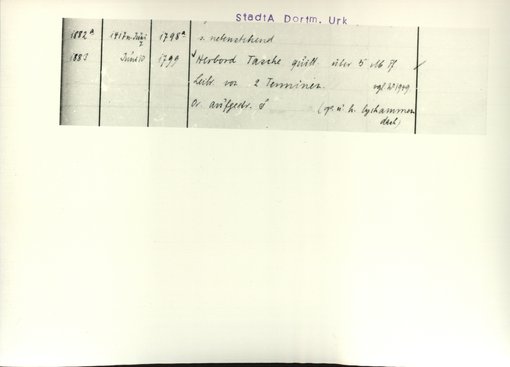 StadtA Dortm. Urk
1882a 1417 n. Juni 7 1798a s. nebenstehend
1883 Juni 10 1799 Herbord Tasche quitt. über 5 Mk
Leibr. von 2 Terminen. vgl. No 1909
Or. aufgedr. S (qu. u. h.